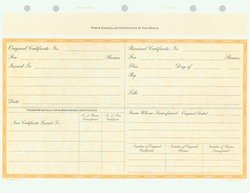 PASTE CANCELLED CERTIFICATE IN THIS SPACE
Original Certificate No.
For Shares
Issued To
Date
TRANSFER OR TAX OR SURRENDERED CERTIFICATES
New Certificate Issued To
No. of Shares Transferred
No. of New Certificate
Received Certificate No.
For Shares
This Day of
By
Title
From Whom Transferred Original Dated
Number of Original Certificate
Number of Original Shares
Number of Shares Transferred